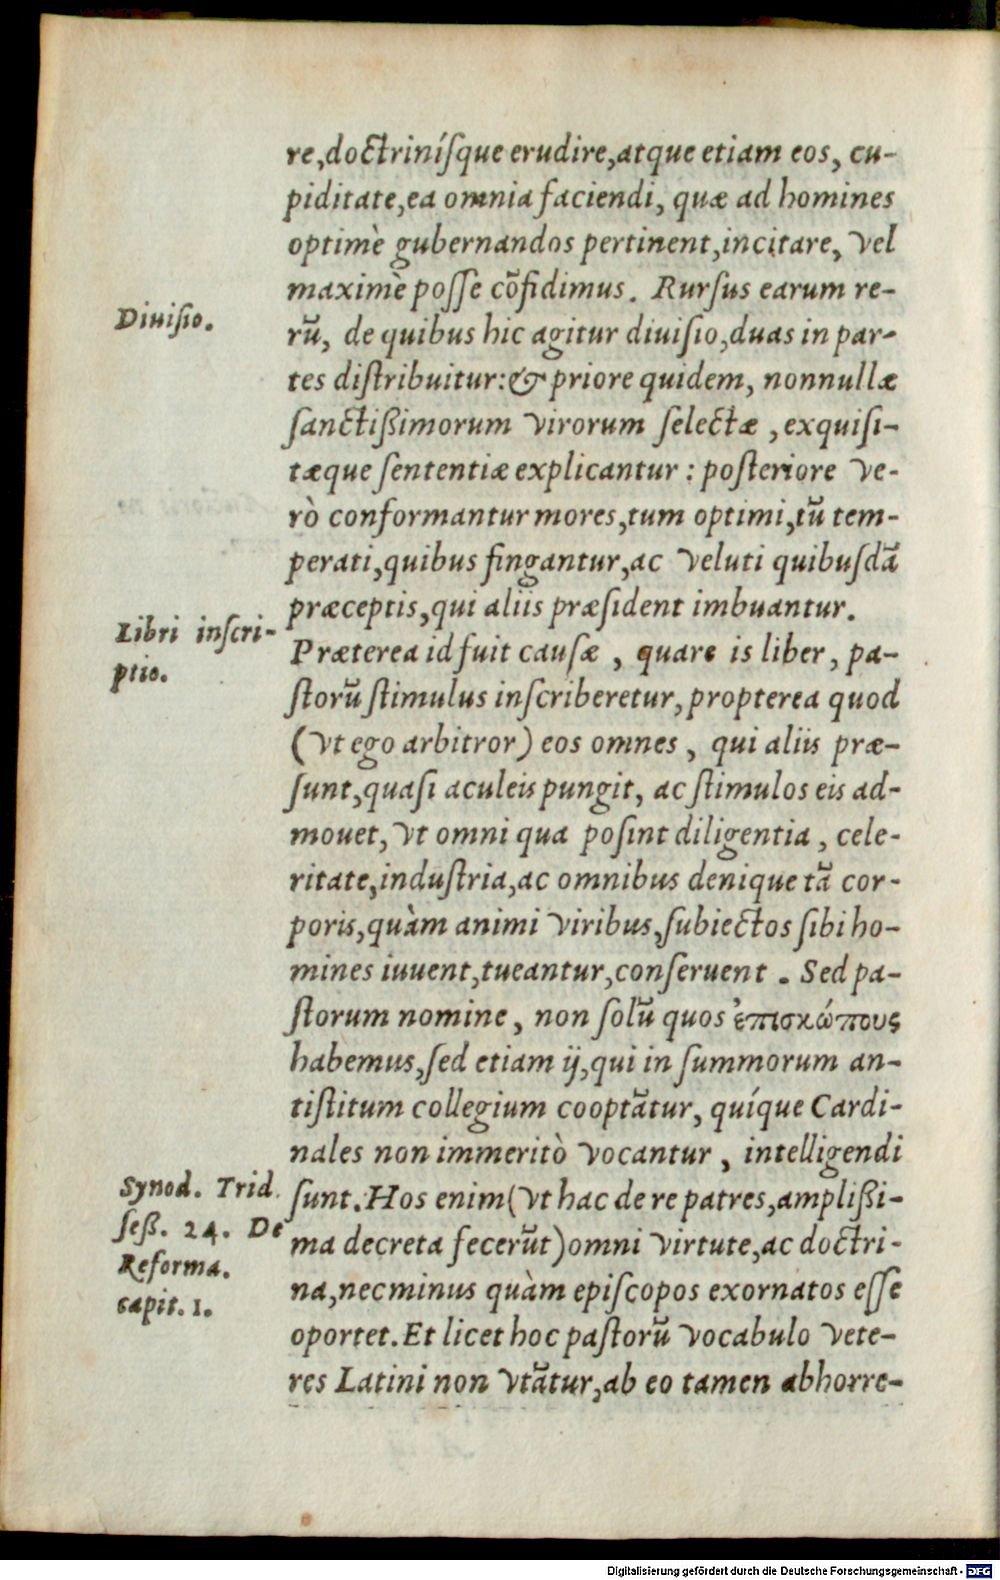 re,doctriníſque erudire,atque etiam eos, cu-
piditate,ea omnia faciendi, quæ ad homines
optimè gubernandos pertinent,incitare, vel
maximè poſſe cõfidimus. Rurſus earum re-
Diuiſio.
rũ, de quibus hic agitur diuiſio,duas in par-
tes diſtribuitur:& priore quidem, nonnullæ
ſanctißimorum virorum ſelectæ , exquiſi-
tæque ſententiæ explicantur : poſteriore ve-
rò conformantur mores,tum optimi,tũ tem-
perati,quibus fingantur,ac veluti quibuſdã
præceptis,qui aliis præſident imbuantur.
Libri inſcri-
ptio.
Præterea id fuit cauſæ , quare is liber, pa-
ſtorũ ſtimulus inſcriberetur,propterea quod
(vt ego arbitror) eos omnes , qui aliis præ-
ſunt,quaſi aculeis pungit, ac ſtimulos eis ad-
mouet, vt omni qua poſint diligentia , cele-
ritate,induſtria,ac omnibus denique tã cor-
poris,quàm animi viribus,ſubiectos ſibi ho-
mines iuuent,tueantur,conſeruent . Sed pa-
ſtorum nomine, non ſolũ quos ἐπισκώπους
habemus,ſed etiam ij,qui in ſummorum an-
tiſtitum collegium cooptãtur, quíque Cardi-
nales non immeritò vocantur , intelligendi
Synod. Trid.
ſeß. 24. De
Reforma.
capit. 1.
ſunt.Hos enim(vt hac de re patres,amplißi-
ma decreta fecerũt)omni virtute,ac doctri-
na,nec minus quàm epiſcopos exornatos eſſe
oportet.Et licet hoc paſtorũ vocabulo vete-
res Latini non vtãtur,ab eo tamen abhorre-
Digitalisierung gefördert durch die Deutsche Forschungsgemeinschaft - DFG